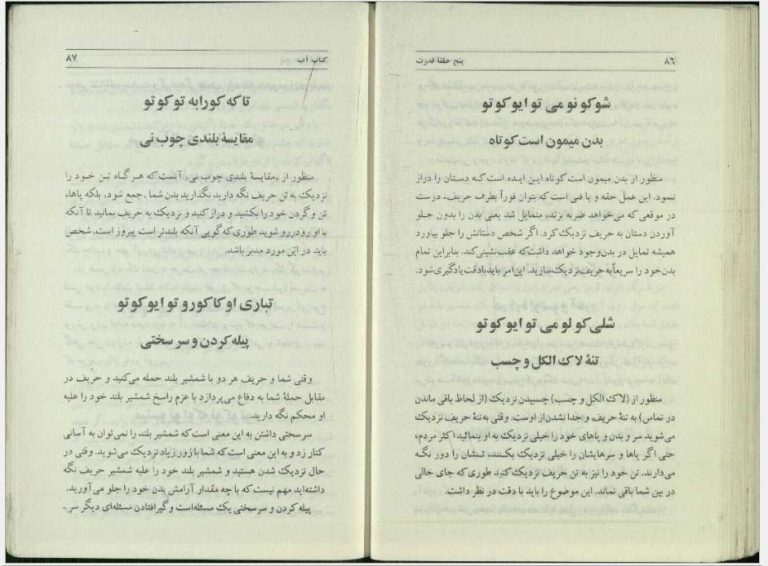 ۸۶
پنج حلقهٔ قدرت
شوکونو می توایوکوتو
بدن میمون است کوتاه
منظور از بدن میمون است کوتاه این ایده است که دستان را دراز
ننمود. این عمل حقه و یا فنی است که بتوان فوراً بطرف حریف، درست
در موقعی که می‌خواهد ضربه بزند، متمایل شد یعنی بدن را بدون جلو
آوردن دستان به حریف نزدیک کرد. اگر شخص دستانش را جلو بیاورد
همیشه تمایل در بدن وجود خواهد داشت که عقب‌نشینی کند. بنابراین تمام
بدن خود را سریعاً به حریف نزدیک سازید. این امر باید بادقت یادگیری شود.
شلی کولو می توایوکوتو
تنهٔ لاک الکل و چسب
منظور از (لاک الکل و چسب) چسبیدن نزدیک (از لحاظ باقی ماندن
در تماس) به تنهٔ حریف و جدا نشدن از اوست. وقتی به تنهٔ حریف نزدیک
می‌شوید سر و بدن و پاهای خود را خیلی نزدیک به او بنمائید اکثر مردم،
حتی اگر پاها و سرهایشان را خیلی نزدیک بکنند، تنشان را دور نگه
می‌دارند. تن خود را نیز به تن حریف نزدیک کنید طوری که جای خالی
در بین شما باقی نماند. این موضوع را باید با دقت در نظر داشت.
کتاب آب
۸۷
تاکه کورابه توکوتو
مقایسهٔ بلندی چوب نی
منظور از «مقایسهٔ بلندی چوب نی» آنست که هر گاه تن خود را
نزدیک به تن حریف نگه دارید نگذارید بدن شما، جمع شود، بلکه پاها،
تن و گردن خود را بکشید و دراز کنید و نزدیک به حریف بمانید تا آنکه
با او رودررو شوید طوری که گویی آنکه بلندتر است پیروز است. شخص
باید در این مورد مدبر باشد.
تباری اوکاکورو توایوکوتو
پیله کردن و سرسختی
وقتی شما و حریف هر دو با شمشیر بلند حمله می‌کنید و حریف در
مقابل حملهٔ شما به دفاع می‌پردازد با عزم راسخ شمشیر بلند خود را علیه
او محکم نگه دارید.
سرسختی داشتن به این معنی است که شمشیر بلند را نمی‌توان به آسانی
کنار زد و به این معنی است که شما با زور زیاد نزدیک می‌شوید. وقتی در
حال نزدیک شدن هستید و شمشیر بلند خود را علیه شمشیر حریف نگه
داشته‌اید مهم نیست که با چه مقدار آرامش بدن خود را جلو می‌آورید.
پیله کردن و سرسختی یک مسئله است و گیرافتادن مسئله‌ای دیگر سر-